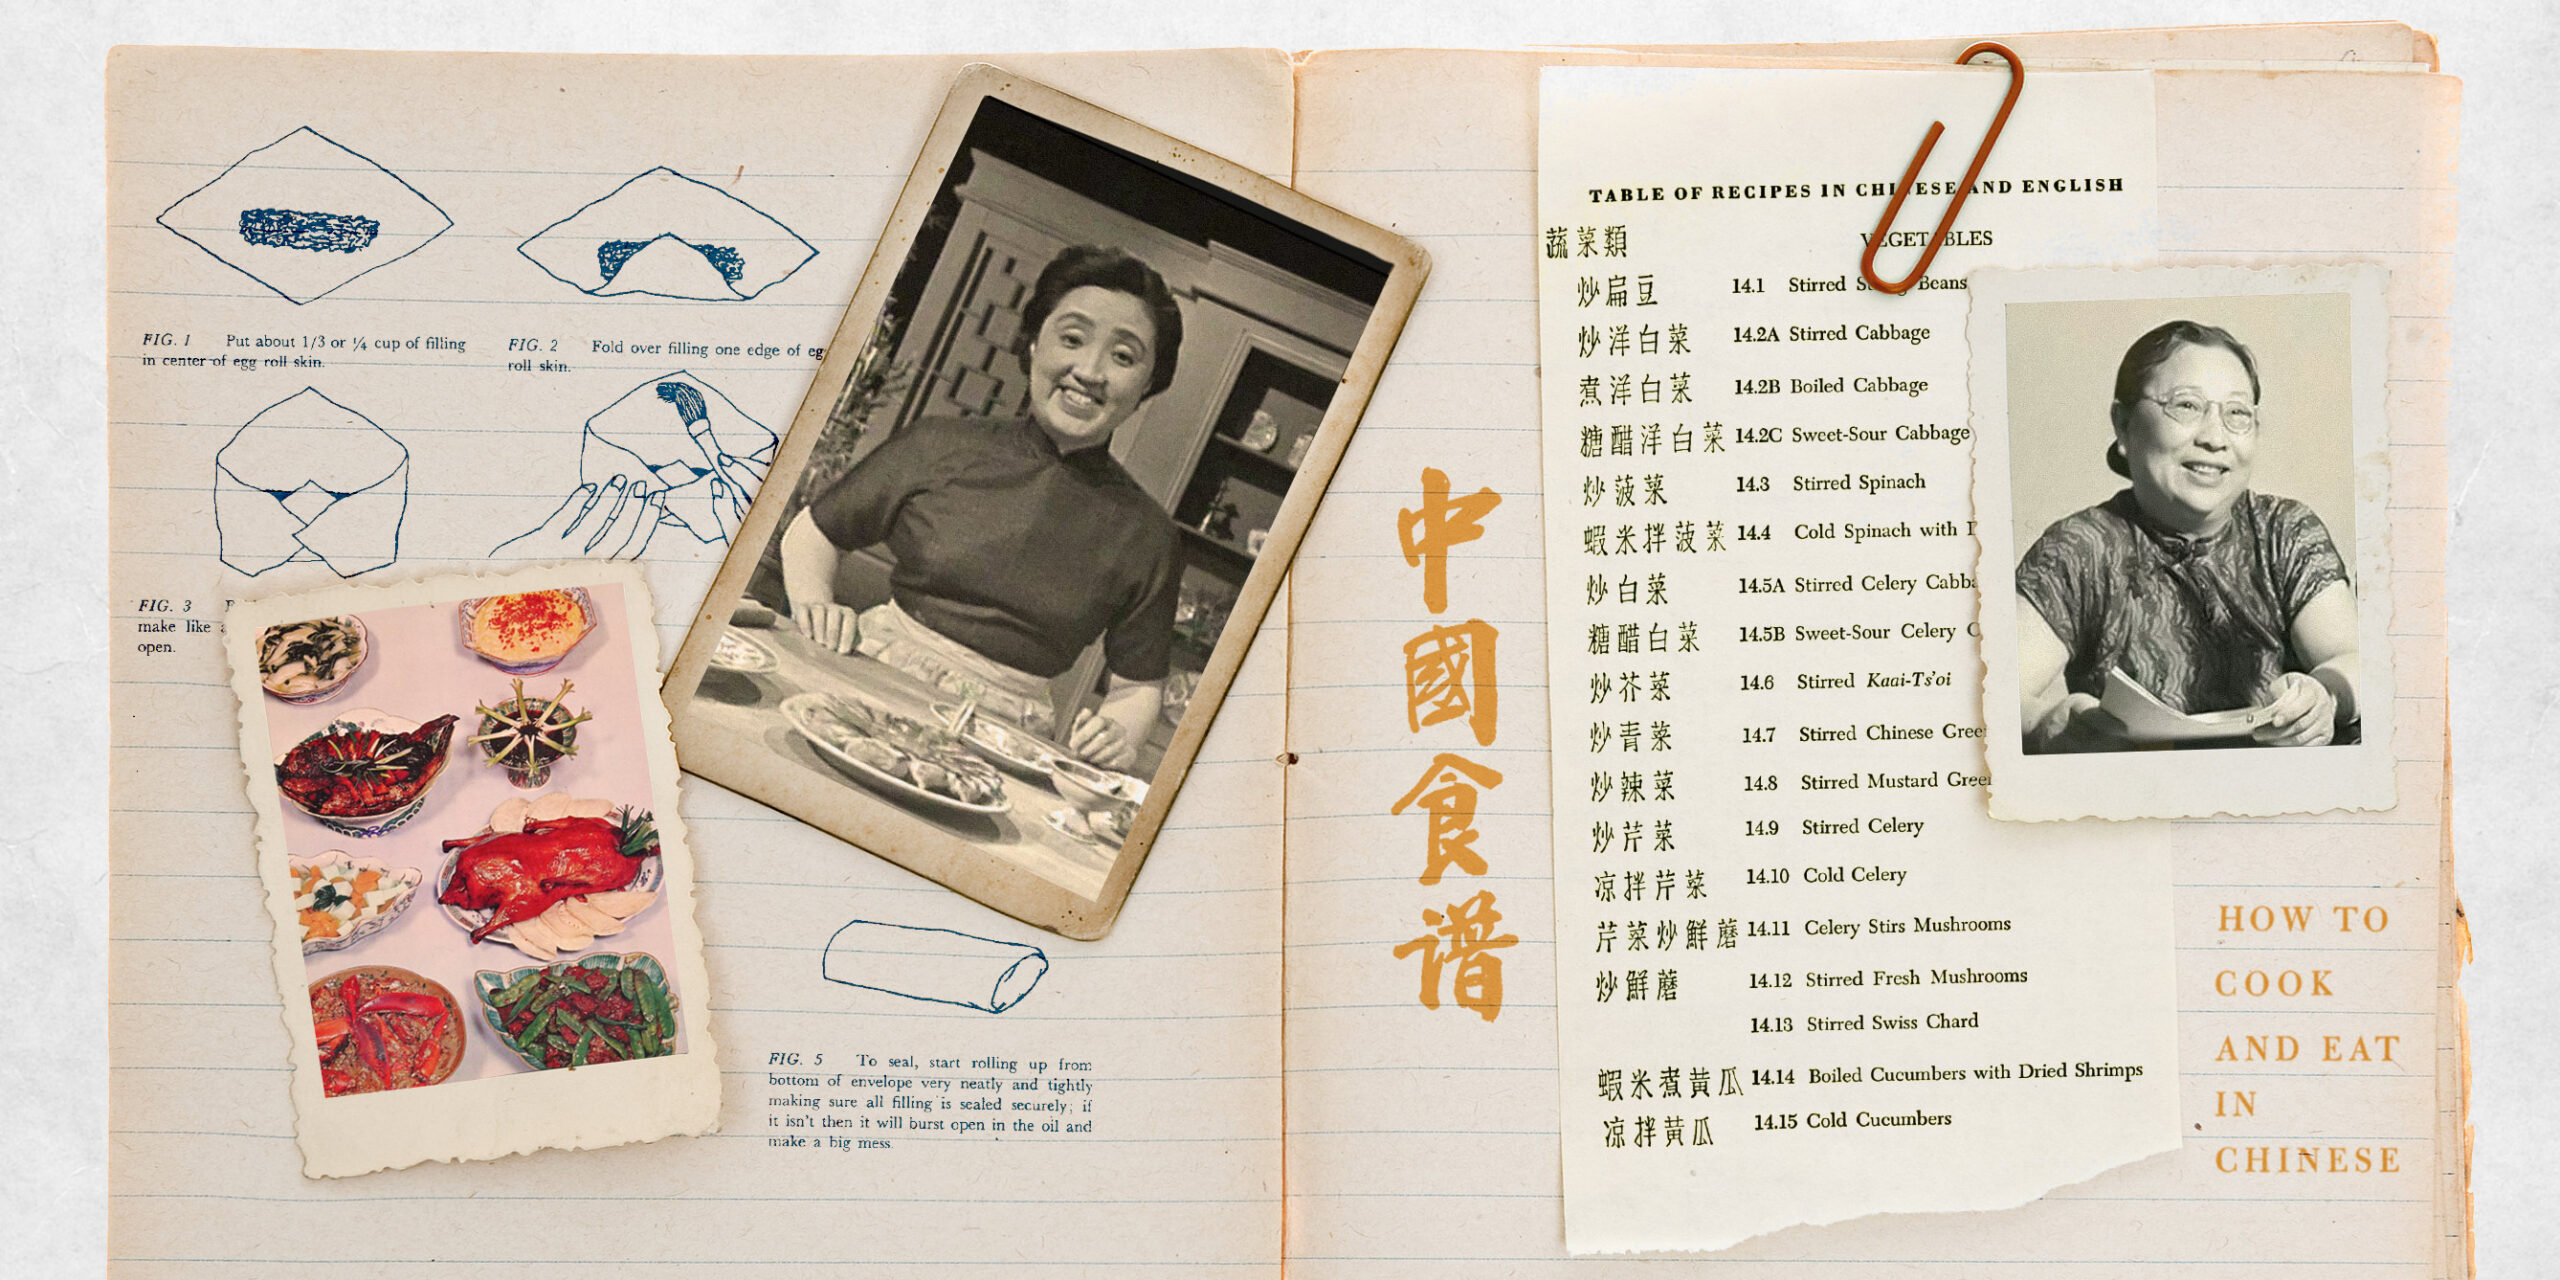 FIG. 1 Put about 1/3 or 1/4 cup of filling
in center of egg roll skin.
FIG. 2 Fold over filling one edge of
roll skin.
FIG. 3
make like
open.
FIG. 5 To seal, start rolling up from
bottom of envelope very neatly and tightly
making sure all filling is sealed securely; if
it isn't then it will burst open in the oil and
make a big mess.
中國食谱
TABLE OF RECIPES IN CHINESE AND ENGLISH
蔬菜類 VEGETABLES
炒扁豆 14.1 Stirred String Beans
炒洋白菜 14.2A Stirred Cabbage
煮洋白菜 14.2B Boiled Cabbage
糖醋洋白菜 14.2C Sweet-Sour Cabbage
炒菠菜 14.3 Stirred Spinach
蝦米拌菠菜 14.4 Cold Spinach with
炒白菜 14.5A Stirred Celery
糖醋白菜 14.5B Sweet-Sour Celery
炒芥菜 14.6 Stirred Kaai-Ts'oi
炒青菜 14.7 Stirred Chinese
炒辣菜 14.8 Stirred Mustard
炒芹菜 14.9 Stirred Celery
凉拌芹菜 14.10 Cold Celery
芹菜炒鮮蘑 14.11 Celery Stirs Mushrooms
炒鮮蘑 14.12 Stirred Fresh Mushrooms
14.13 Stirred Swiss Chard
蝦米煮黃瓜 14.14 Boiled Cucumbers with Dried Shrimps
凉拌黃瓜 14.15 Cold Cucumbers
HOW TO
COOK
AND EAT
IN
CHINESE